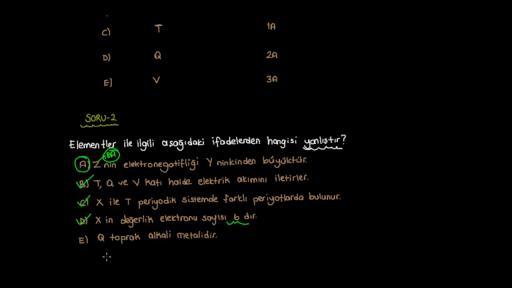 C) T 1A
D) Q 2A
E) V 3A
SORU-2
Elementler ile ilgili aşağıdaki ifadelerden hangisi yanlıştır?
A) Z'nin elektronegatifliği Y ninkinden büyüktür.
B) T, Q ve V katı halde elektrik akımını iletirler.
C) X ile T periyodik sistemde farklı periyotlarda bulunur.
D) X in değerlik elektronu sayısı 6 dır.
E) Q toprak alkali metalidir.